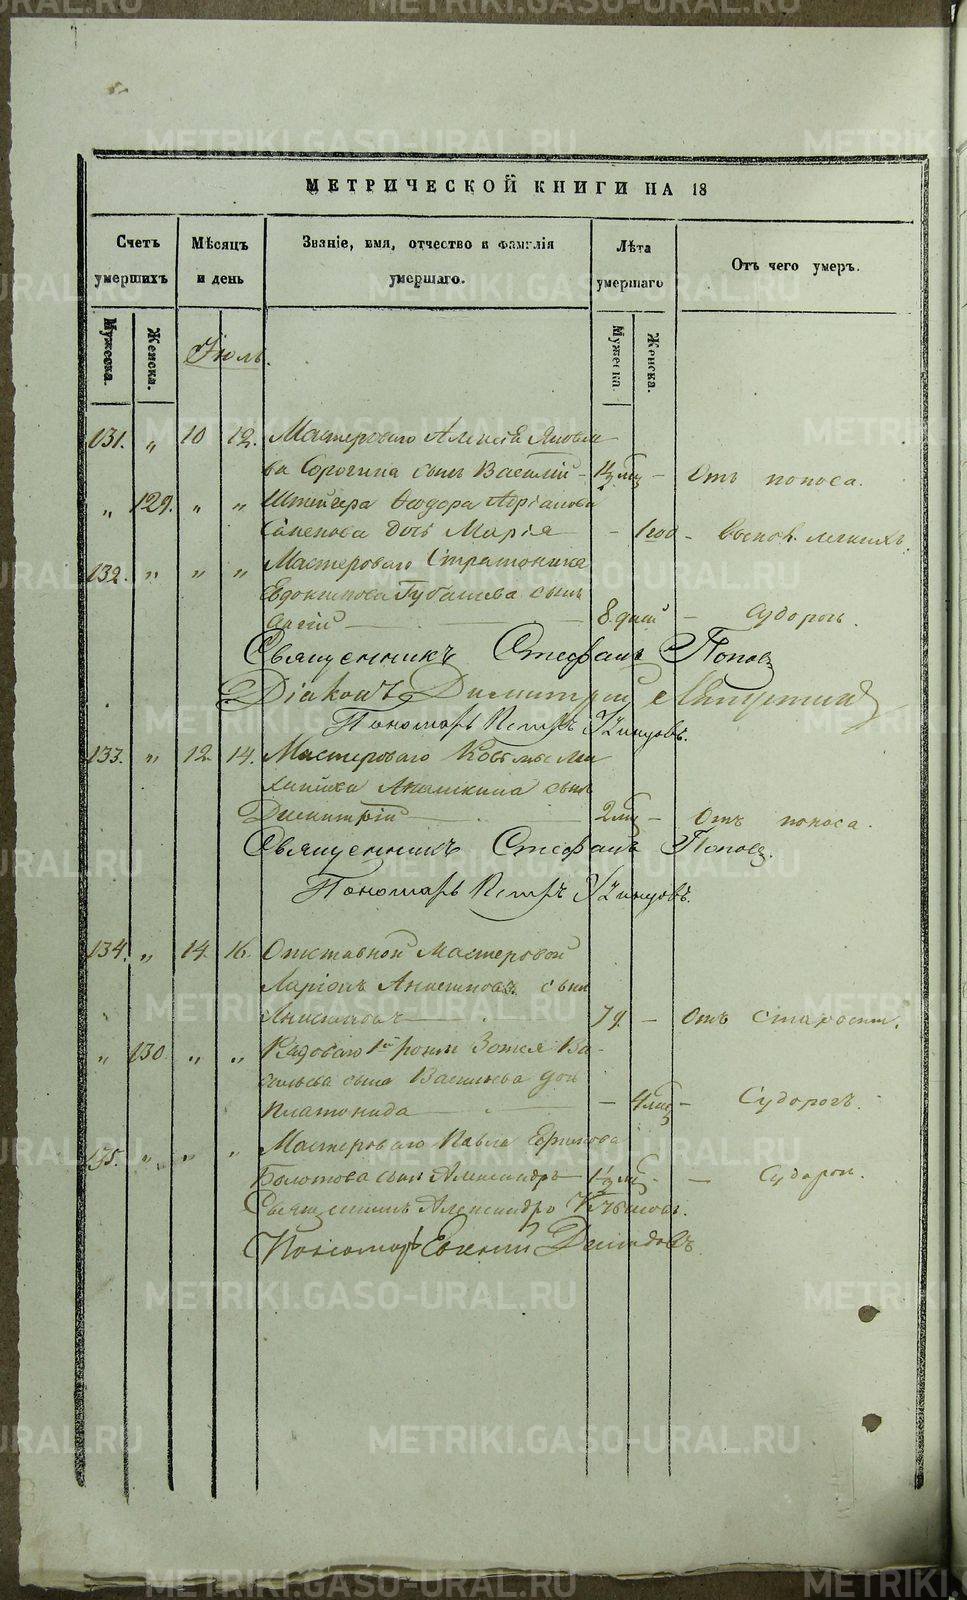 МЕТРИЧЕСКОЙ КНИГИ НА 18
Счетъ умершихъ
Мѣсяцъ и день
Званіе, имя, отчество и фамилія умершаго.
Лѣта умершаго
Отъ чего умеръ.
Мужеска.
Женска.
Мужеска.
Женска.
Іюль.
131. „ 10 12. Мастероваго Алексѣя Яковле-
ва Сорогина сынъ Василій - 1½ мѣс - Отъ поноса.
„ 129. „ „ Штейгера Ѳеодора
дочь Марія - 1 год - Воспол. легкихъ.
132. „ „ „ Мастероваго Стратоника
Евдокимова Губашева сынъ
8 дней - Судорог.
Священникъ Стефанъ Поповъ
Діаконъ Димитрій
Пономарь Петръ
133. „ 12. 14. Мастероваго Косьмы
сынъ
Димитрій 2 мѣс - Отъ поноса.
Священникъ Стефанъ Поповъ.
Пономарь Петръ
134. „ 14. 16. Отставной Мастеровой
Ларіонъ сынъ
- Отъ старости.
„ 130. „ „ Рядоваго 1й роты Ва-
сильева сына Васильева доч
Платонида - 4 мѣс - Судорогъ.
135. „ „ „ Мастероваго Павла Ефимова
Болотова сынъ Александръ 1½ мѣс - Судорог.
Священникъ Александръ
Пономарь Евгеній Демидовъ
METRIKI.GASO-URAL.RU